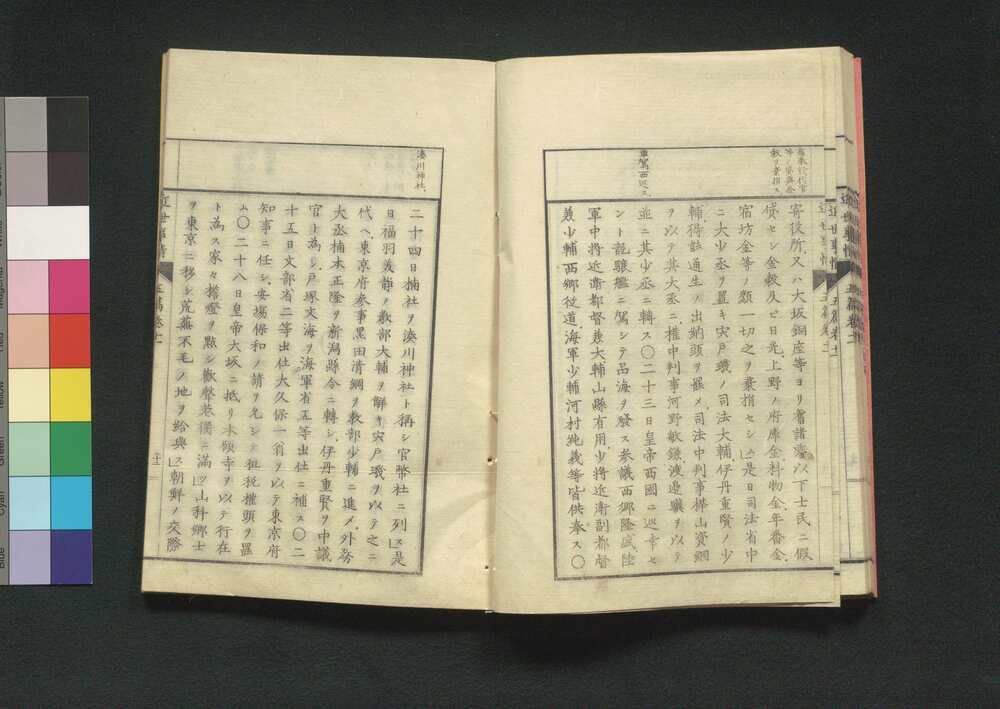 舊幕於代官
等ノ貸與金
穀ヲ棄捐ス
車駕西巡ス
寄役所又ハ大坂銅座等ヨリ舊諸藩以下士民ニ假
貸セシ金穀及ヒ日光上野ノ府庫金掛物金年番金
宿坊金等ノ類一切之ヲ棄捐セシム是日司法省中
ニ大少丞ヲ置キ宍戸璣ノ司法大輔伊丹重賢ノ少
輔得能通生ノ出納頭ヲ罷メ司法中判事樺山資綱
ヲ以テ其大丞ニ權中判事河野敏鎌渡邊驥ヲ以テ
並ニ其少丞ニ轉ス〇二十三日皇帝西國ニ巡幸セ
ント龍驤艦ニ駕シテ品海ヲ發ス參議西郷隆盛陸
軍中將近衛都督兼大輔山縣有朋少將近衛副都督
兼少輔西郷從道海軍少輔河村純義等皆供奉ス〇
湊川神社
二十四日楠社ヲ湊川神社ト稱シ官幣社ニ列ス是
日福羽美靜ノ教部大輔ヲ解キ宍戸璣ヲ以テ之ニ
代ヘ東京府參事黑田清綱ヲ教部少輔ニ進メ外務
大丞楠本正隆ヲ新潟縣令ニ轉シ伊丹重賢ヲ中議
官ト為シ戸塚文海ヲ海軍省五等出仕ニ補ス〇二
十五日文部省二等出仕大久保一翁ヲ以テ東京府
知事ニ任シ安場保和ノ請ヲ允シ租税權頭ヲ罷
ム〇二十八日皇帝大坂ニ抵リ本願寺ヲ以テ行在
ト為ス家々搭燈ヲ點シ歡聲巷衢ニ滿ツ山科郷士
ヲ東京ニ移シ荒蕪不毛ノ地ヲ給與ス朝鮮ノ交際
近世事情
五篇卷十一